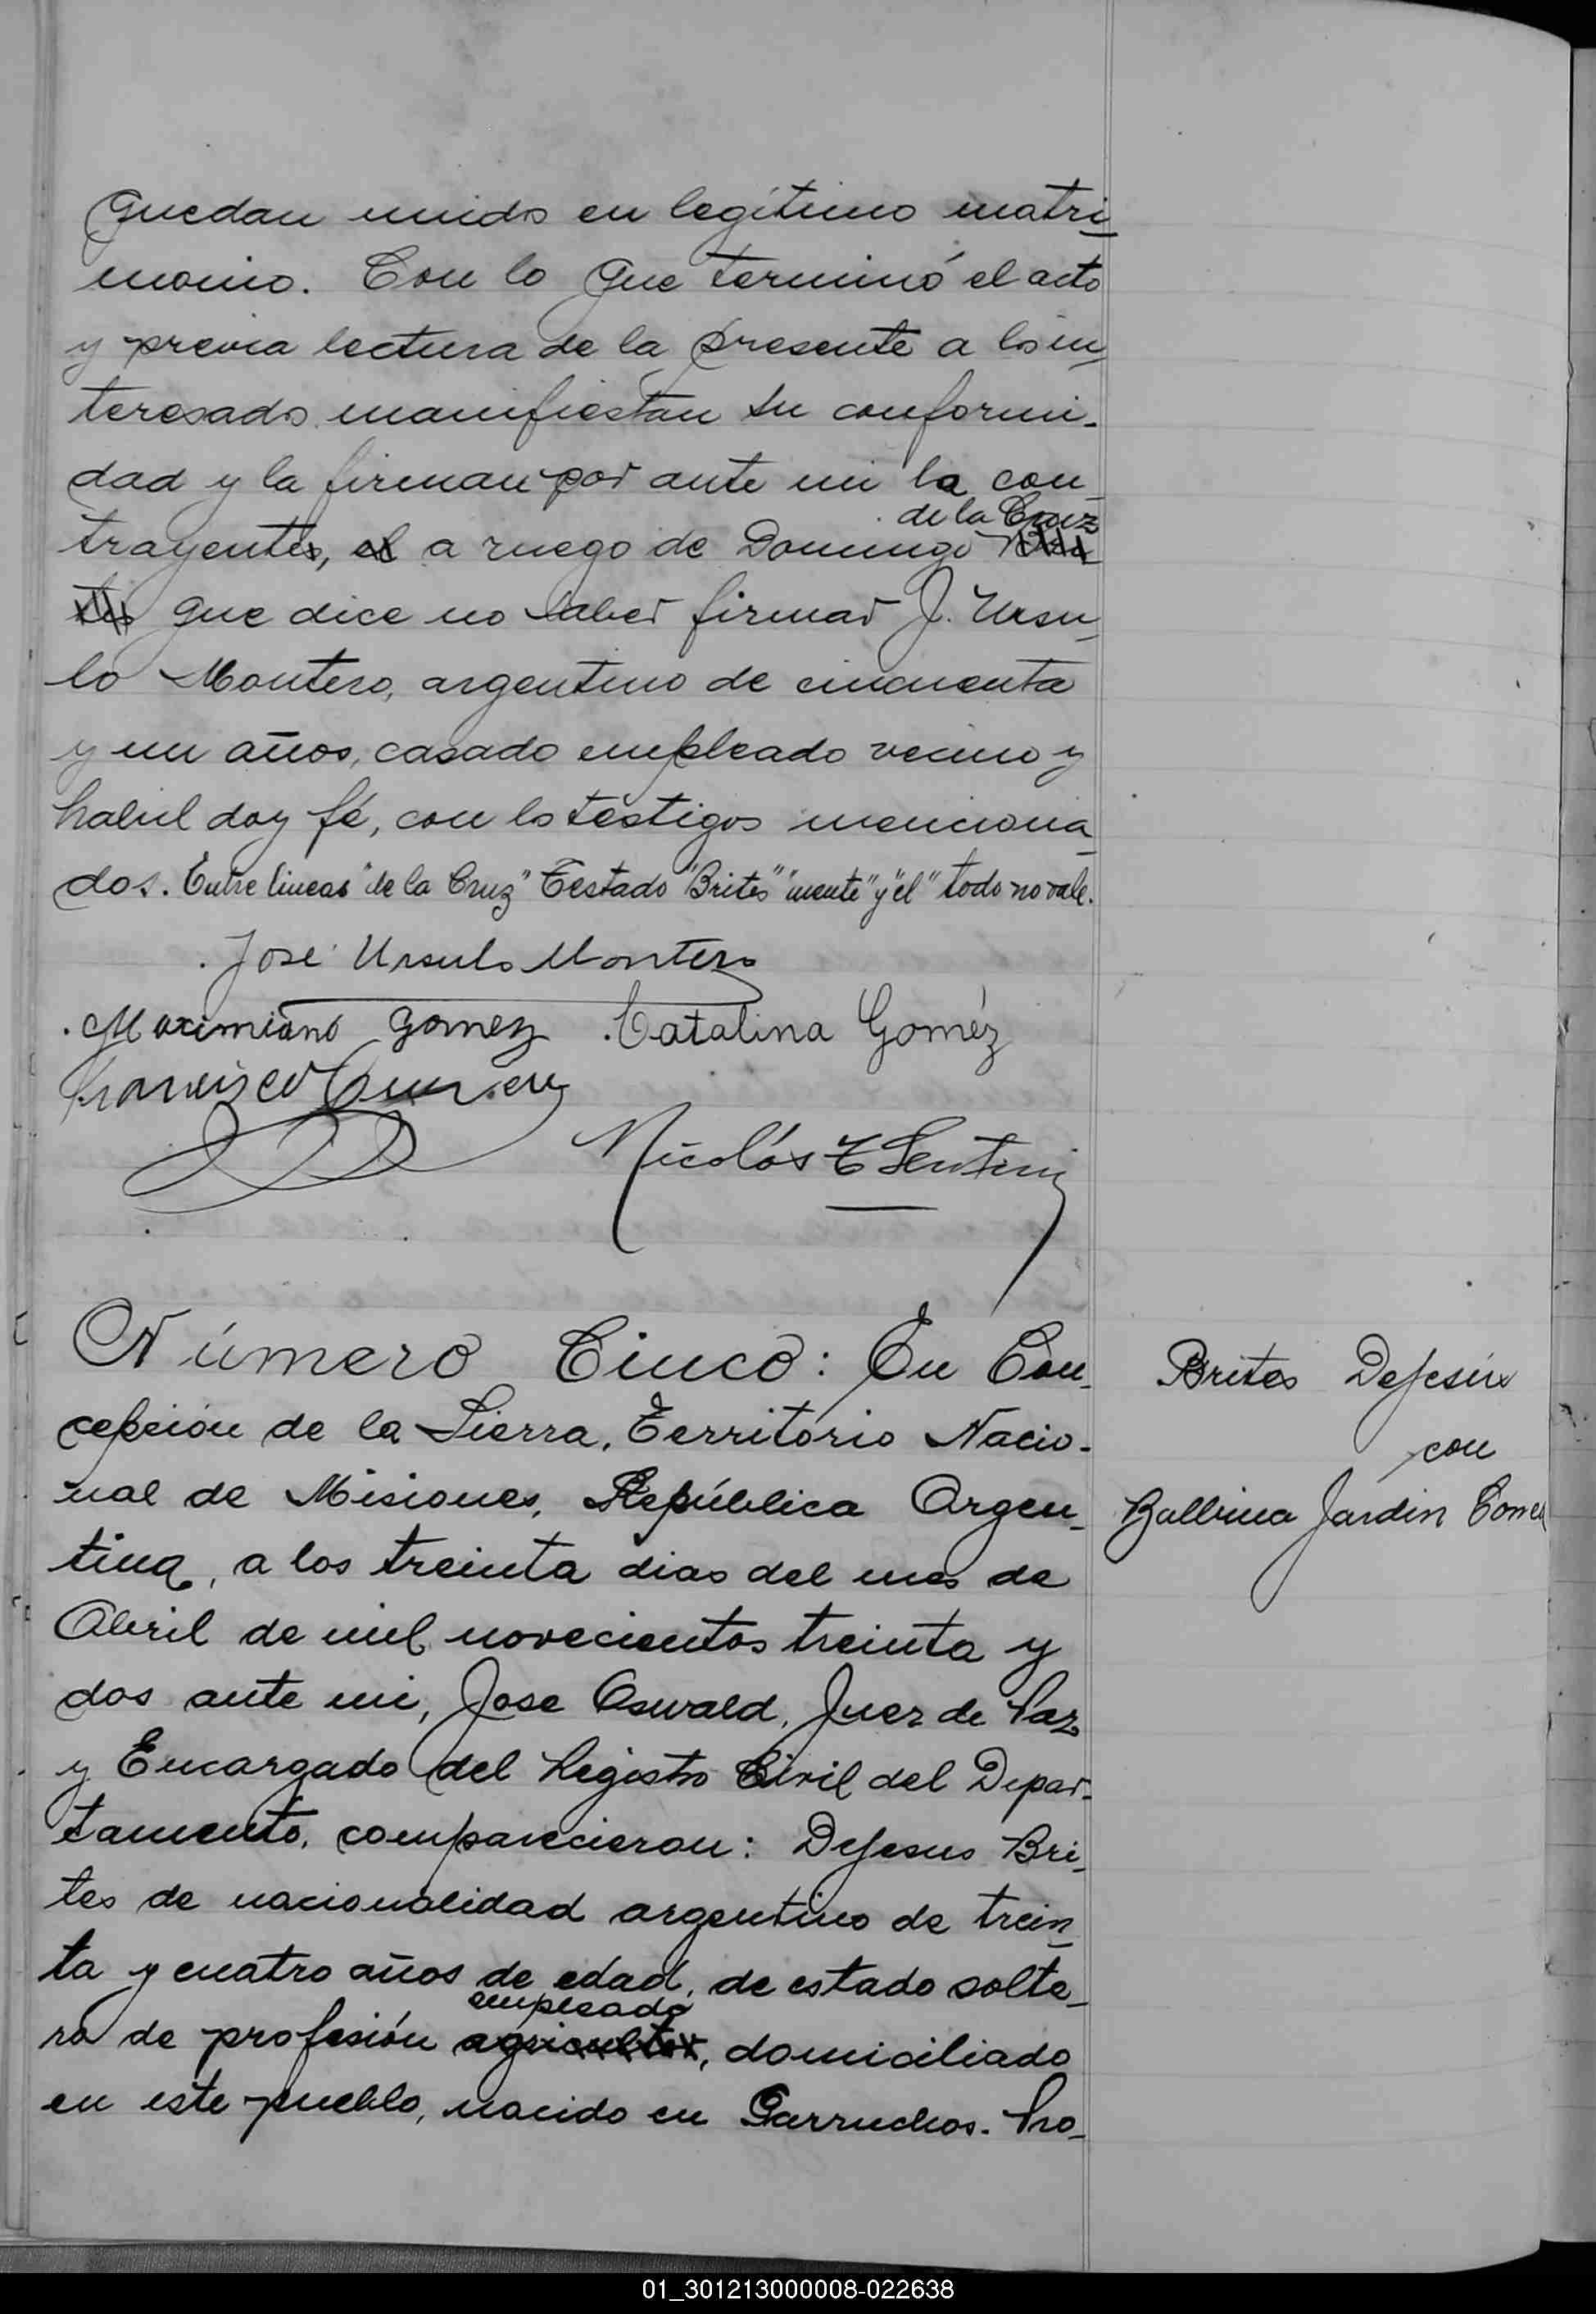 quedan unidos en legítimo matri-
monio. Con lo que terminó el acto
y previa lectura de la presente a los in-
teresados manifiestan su conformi-
dad y la firman por ante mi la con-
de la Cruz
trayente, el a ruego de Domingo
que dice no saber firmar J. Ursu-
lo Montero, argentino de cincuenta
y un años, casado empleado vecino y
habil doy fé, con los testigos menciona-
dos. Entre lineas "de la Cruz" Testado "Brites" "mente" y "el" todo no vale.
José Ursulo Montero
Maximiano Gomez Catalina Goméz
Francisco
Nicolás T Sentini
Número Cinco: En Con-
cepción de la Sierra, Territorio Nacio-
nal de Misiones, República Argen-
tina, a los treinta dias del mes de
Abril de mil novecientos treinta y
dos ante mi, Jose Oswald, Juez de Paz
y Encargado del Registro Civil del Depar-
tamento, comparecieron: DeJesus Bri-
tes de nacionalidad argentino de trein-
ta y cuatro años de edad, de estado solte-
empleado
ro de profesión agricultor, domiciliado
en este pueblo, nacido en Garruchos. Pro-
Brites DeJesús
con
Balbina Jardin Correa
01_301213000008-022638